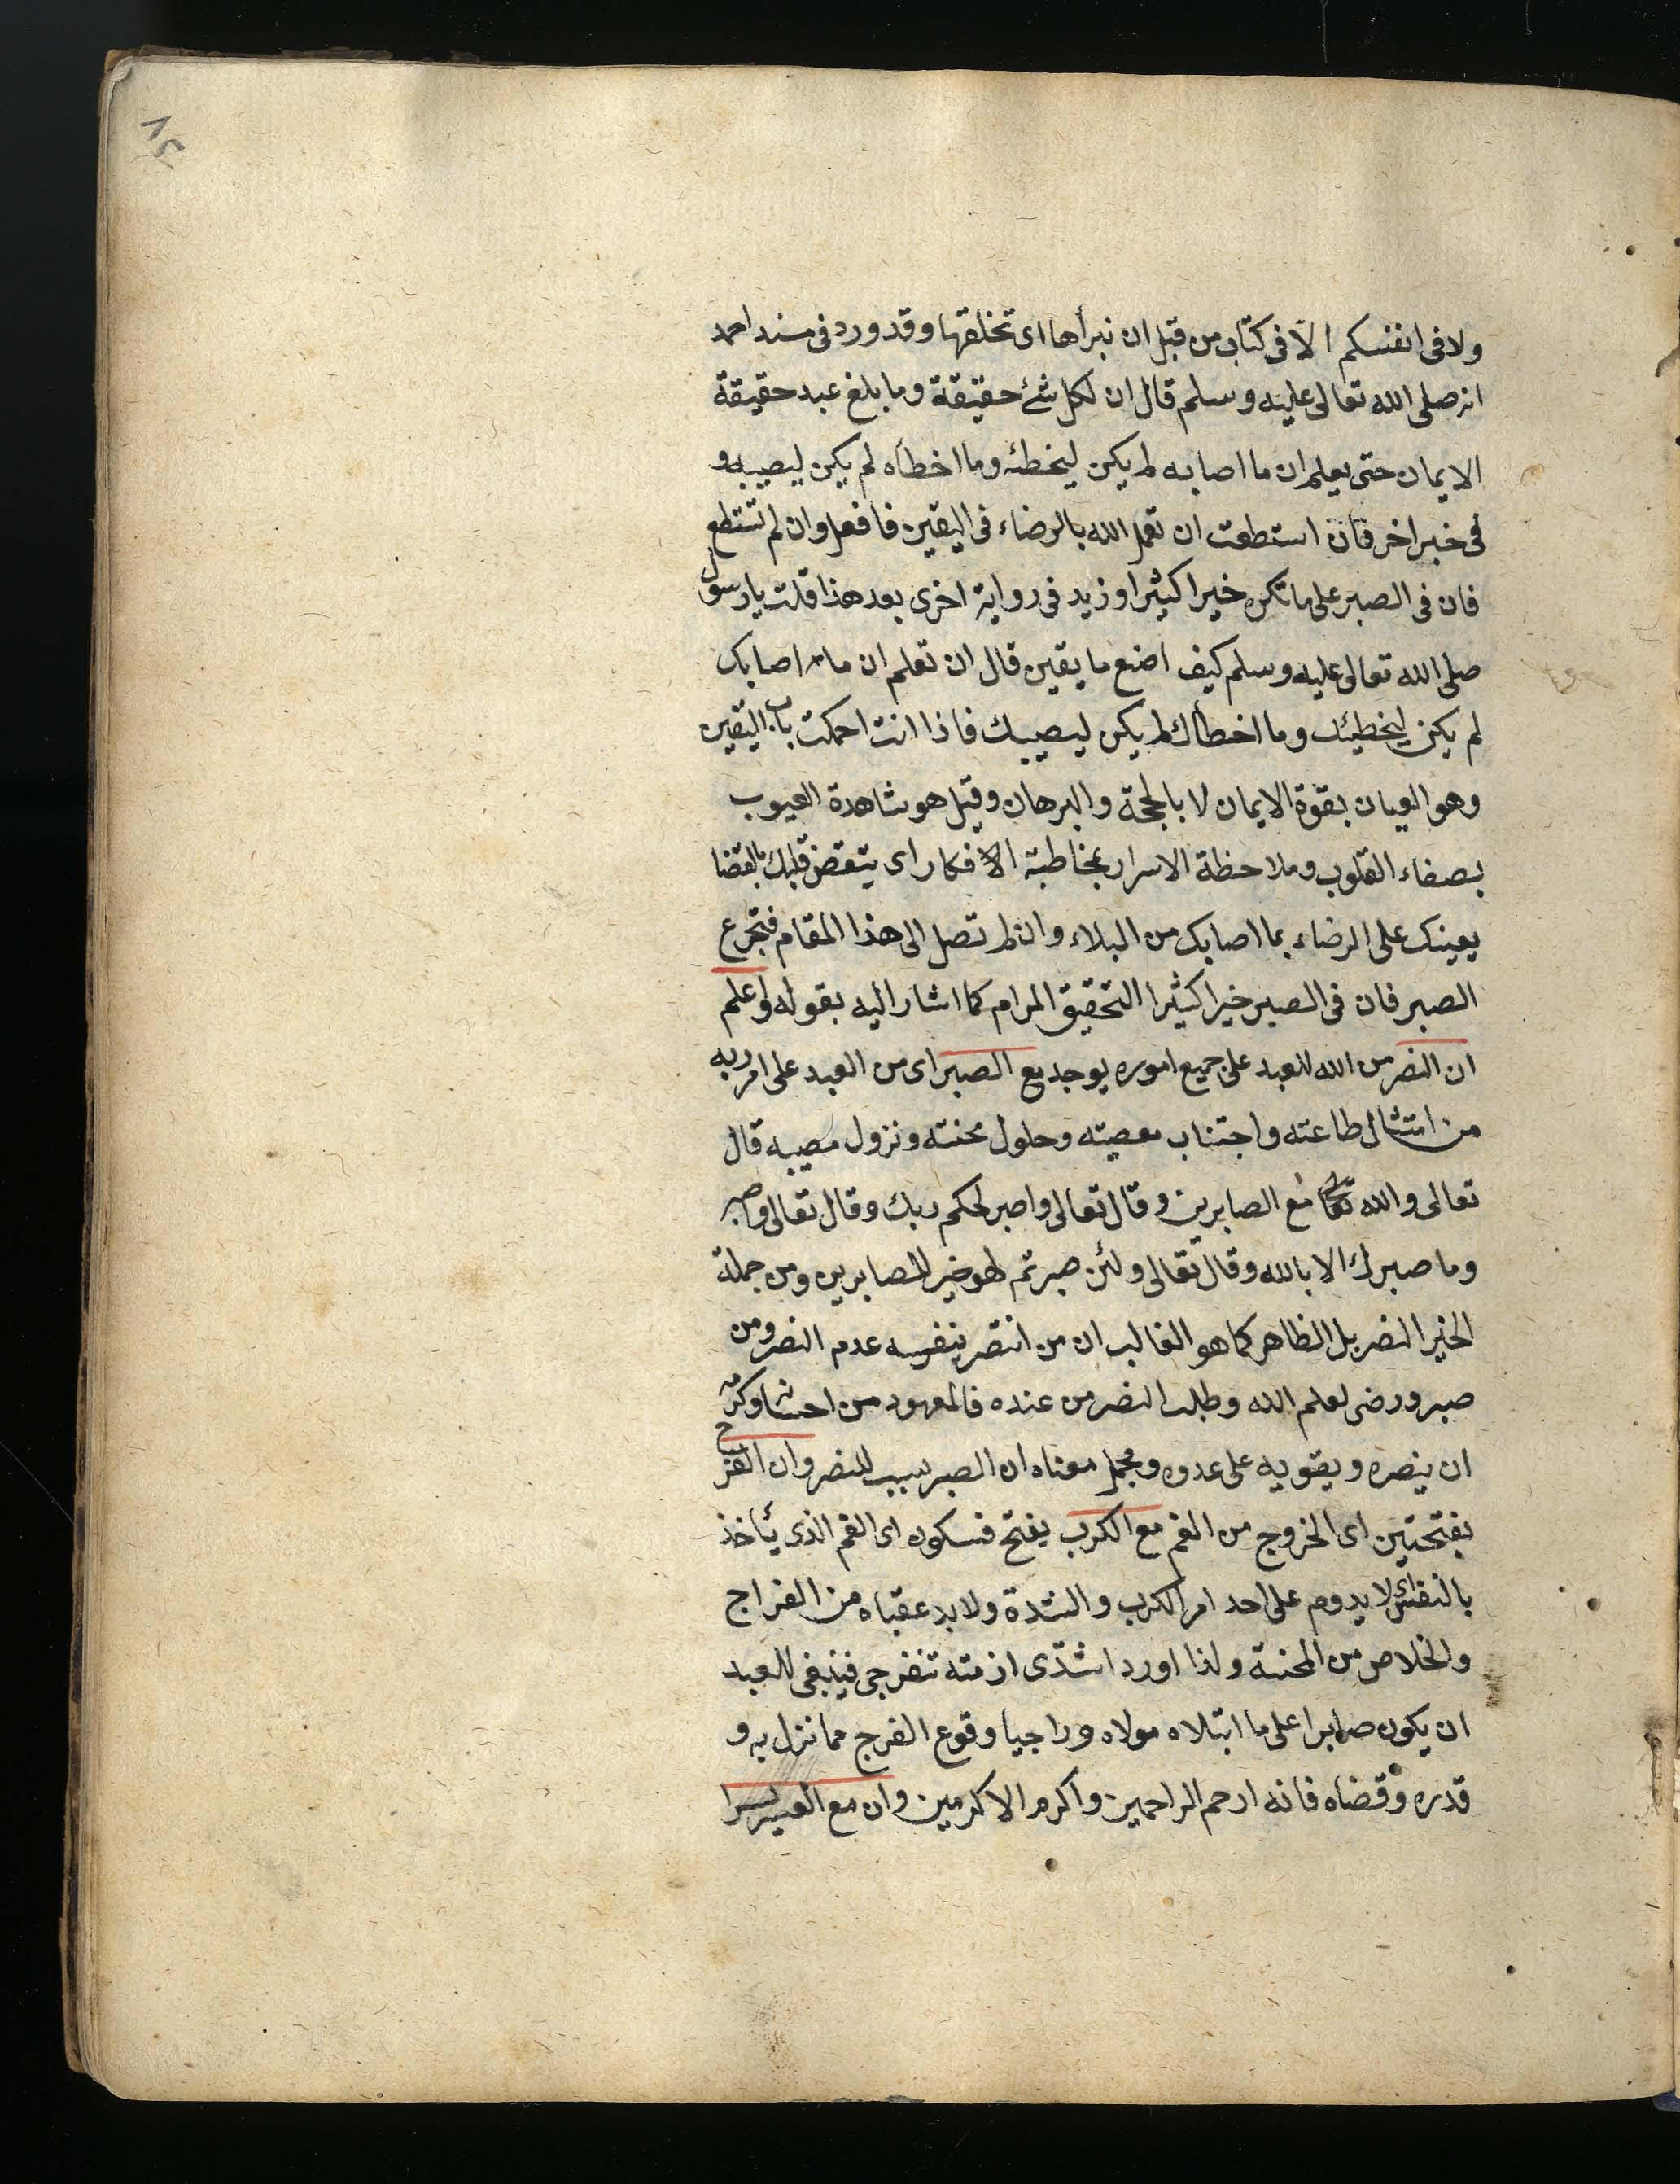 ٨٥
ولا فى انفسكم الّا فى كتاب من قبل ان نبرأها اى تخلقها وقد ورد فى مسند احمد
انه صلى الله تعالى عليه وسلم قال ان لكل شئ حقيقة وما بلغ عبد حقيقة
الايمان حتى يعلم ان ما اصابه لم يكن ليخطئه وما اخطأه لم يكن ليصيبه و
فى خبر اخر فان استطعت ان تعمل الله بالرضاء فى اليقين فافعل وان لم تستطع
فان فى الصبر على ما تكره خيرا كثيرا وزيد فى رواية اخرى بعد هذا قلت يا رسول
صلى الله تعالى عليه وسلم كيف اصنع ما يقين قال ان تعلم ان ما اصابك
لم يكن ليخطيئك وما اخطأك لم يكن ليصيبك فاذا انت احكمت باب اليقين
وهو العيان بقوة الايمان لا بالحجة والبرهان وقيل هو مشاهدة الغيوب
بصفاء القلوب وملاحظة الاسرار بمخاطبة الافكار اى يتقض قلبك بالقضا
يعينك على الرضاء بما اصابك من البلاء وان لم تصل الى هذا المقام فتجرع
الصبر فان فى الصبر خيرا كثيرا التحقيق المرام كما اشار اليه بقوله واعلم
ان النصر من الله للعبد على جميع اموره يوجد مع الصبر اى من العبد على امر ربه
من امتثال طاعته واجتناب معصيته وحلول محنته ونزول مصيبه قال
تعالى والله مع الصابرين وقال تعالى واصبر لحكم ربك وقال تعالى واصبر
وما صبرك الا بالله وقال تعالى ولئن صبرتم لهو خير للصابرين ومن جملة
الخير النصر بل الظاهر كما هو الغالب ان من انتصر بنفسه عدم النصر ومن
صبر ورضى لعلم الله وطلب النصر من عنده فالمعهود من احسانه وكرمه
ان ينصره ويقويه على عدوه ومجمل معناه ان الصبر سبب للنصر وان الفرج
بفتحتين اى الخروج من الغم مع الكرب يفتح فسكون اى الغم الذى يأخذ
بالنفس اى لا يدوم على احد امر الكرب والشدة ولا بد عقباه من الفراج
والخلاص من المحنة ولذا اورد اشتدّى ازمته تنفرجى فينبغى للعبد
ان يكون صابرا على ما ابتلاه مولاه وراجيا وقوع الفرج مما نزل به و
قدره وقضاه فانه ارحم الراحمين واكرم الاكرمين وان مع العسر يسرا